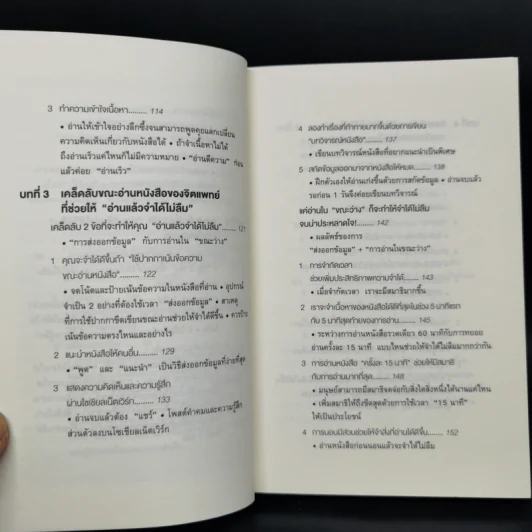 3 ทำความเข้าใจเนื้อหา......... 114
• อ่านให้เข้าใจอย่างลึกซึ้งจนสามารถพูดคุยแลกเปลี่ยน
ความคิดเห็นเกี่ยวกับหนังสือได้ • ถ้าจำเนื้อหาไม่ได้
ถึงอ่านเร็วแค่ไหนก็ไม่มีความหมาย • "อ่านตีความ" ก่อน
แล้วค่อย "อ่านเร็ว"
บทที่ 3 เคล็ดลับขณะอ่านหนังสือของจิตแพทย์
ที่ช่วยให้ "อ่านแล้วจำได้ไม่ลืม"
เคล็ดลับ 2 ข้อที่จะทำให้คุณ "อ่านแล้วจำได้ไม่ลืม"......... 121
• "การส่งออกข้อมูล" กับการอ่านใน "ขณะว่าง"
1 คุณจะจำได้ดีขึ้นถ้า "ใช้ปากกาเน้นข้อความ
ขณะอ่านหนังสือ"......... 122
• จดโน้ตและป้ายเน้นข้อความในหนังสือที่อ่าน • อุปกรณ์
จำเป็น 2 อย่างที่ต้องใช้เวลา "ส่งออกข้อมูล" • สาเหตุ
ที่การใช้ปากกาขีดเขียนขณะอ่านช่วยให้จำได้ดีขึ้น • ควรป้าย
เน้นข้อความตรงไหนและอย่างไร
2 แนะนำหนังสือให้คนอื่น......... 129
• "พูด" และ "แนะนำ" เป็นวิธีส่งออกข้อมูลที่ง่ายที่สุด
3 แสดงความคิดเห็นและความรู้สึก
ผ่านโซเชียลเน็ตเวิร์ก......... 133
• อ่านจบแล้วต้อง "แชร์" • โพสต์คำคมและความรู้สึก
ส่วนตัวลงบนโซเชียลเน็ตเวิร์ก
4 ลองทำเรื่องที่ท้าทายมากขึ้นด้วยการเขียน
"บทวิจารณ์หนังสือ"......... 137
• เขียนบทวิจารณ์หนังสือที่อยากแนะนำเป็นพิเศษ
5 สกัดข้อมูลออกมาจากหนังสือให้หมด......... 138
• ฝึกตัวเองให้อ่านเก่งขึ้นด้วยการสกัดข้อมูล • อ่านจบแล้ว
รอก่อน 1 วันจึงค่อยเขียนบทวิจารณ์
แค่อ่านใน "ขณะว่าง" ก็จะทำให้จำได้ไม่ลืม
จนน่าประหลาดใจ!......... 142
• ผลลัพธ์ของการ
"ส่งออกข้อมูล" + "การอ่านในขณะว่าง"
1 การจำกัดเวลา
ช่วยเพิ่มประสิทธิภาพความจำได้......... 143
• เมื่อจำกัดเวลา เราจะมีสมาธิมากขึ้น
2 เราจะจำเนื้อหาของหนังสือได้ดีที่สุดในช่วง 5 นาทีแรก
กับ 5 นาทีสุดท้ายของการอ่าน......... 145
• ระหว่างการอ่านหนังสือรวดเดียว 60 นาทีกับการทยอย
อ่านครั้งละ 15 นาที แบบไหนช่วยให้จำได้ไม่ลืมมากกว่ากัน
3 การอ่านหนังสือ "ครั้งละ 15 นาที" ช่วยให้มีสมาธิ
กับการอ่านมากที่สุด......... 148
• มนุษย์สามารถมีสมาธิจดจ่อกับสิ่งใดสิ่งหนึ่งได้นานแค่ไหน
• เพิ่มสมาธิให้ถึงขีดสุดด้วยการใช้เวลา "15 นาที"
ให้เป็นประโยชน์
4 การนอนมีส่วนช่วยให้จำสิ่งที่อ่านได้ดีขึ้น......... 152
• อ่านหนังสือก่อนนอนแล้วจะจำได้ไม่ลืม